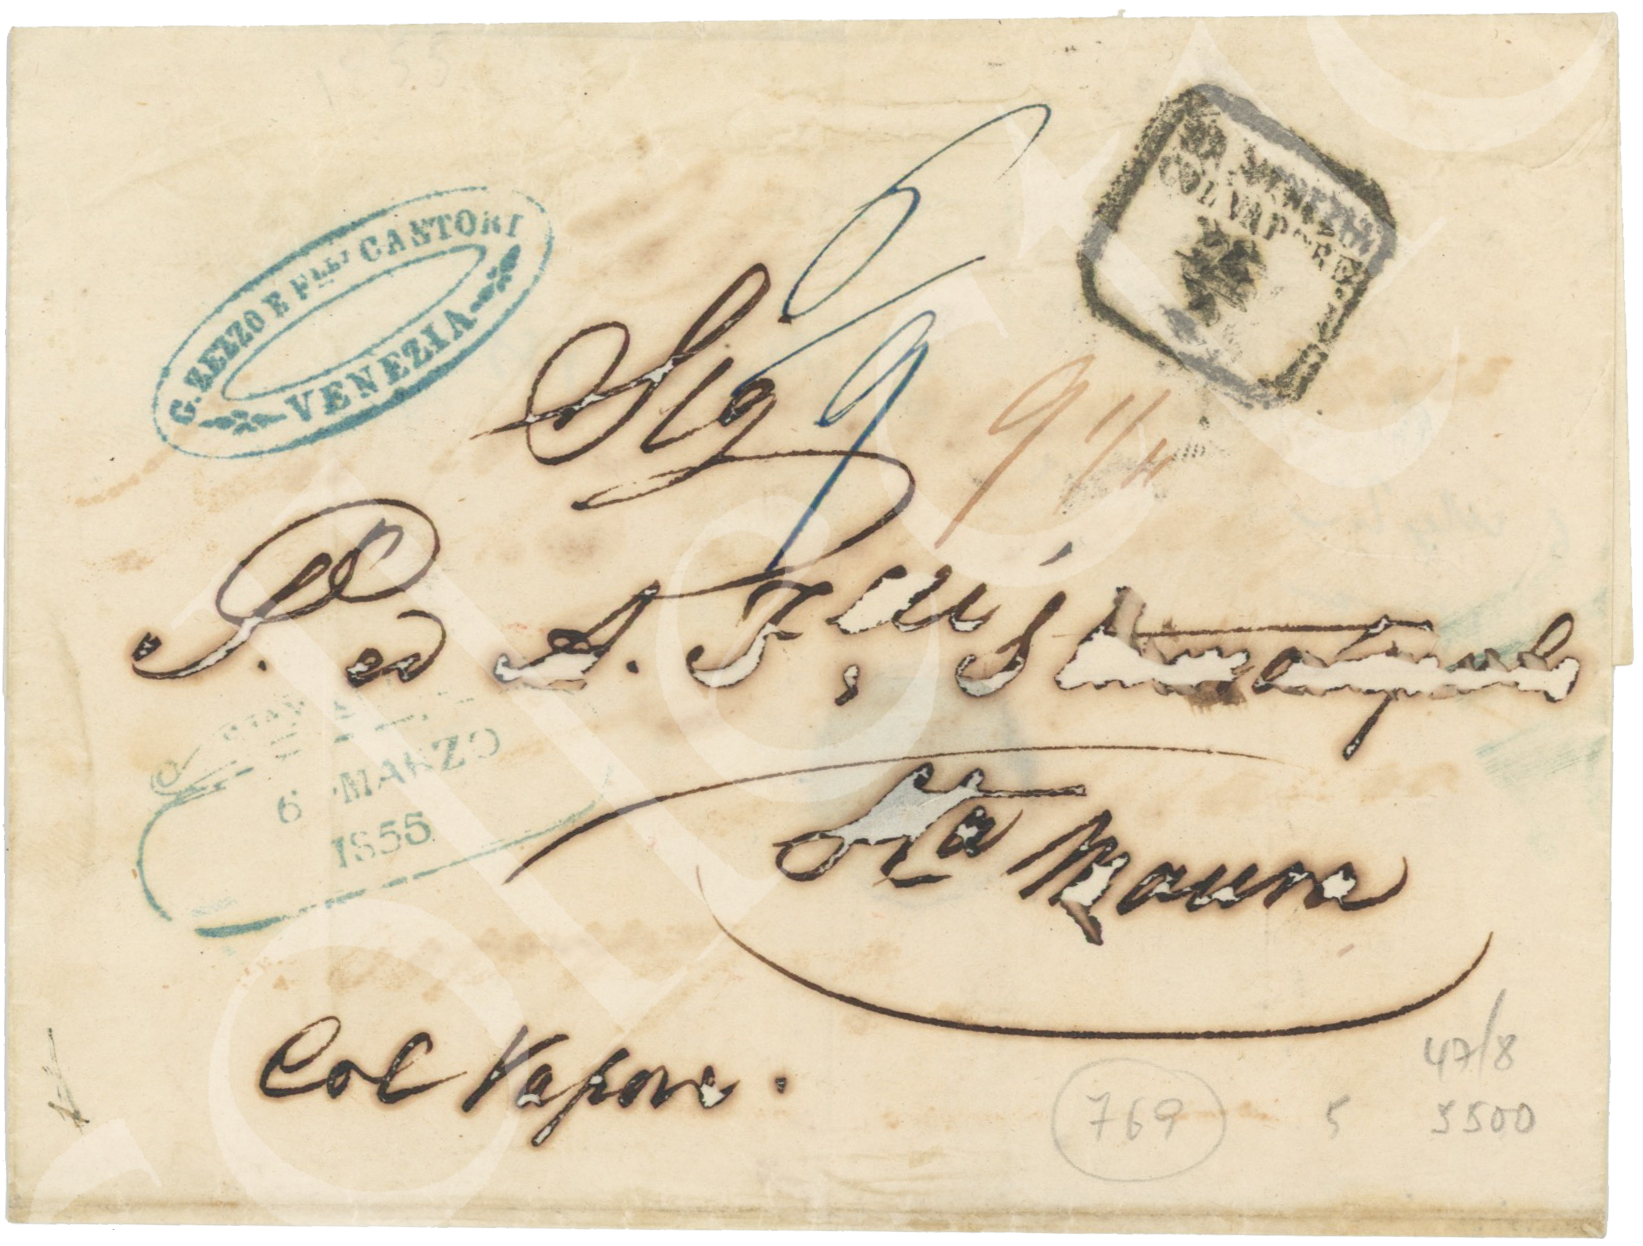 1855
G. ZELZO E FLLI CANTORI
VENEZIA
DA VENEZIA
COL VAPORE
6
9
9 1/4
Sig
P. ed A. Flli
Sta Maura
6 MARZO
1855
Col Vapore.
769
5
47/8
5500